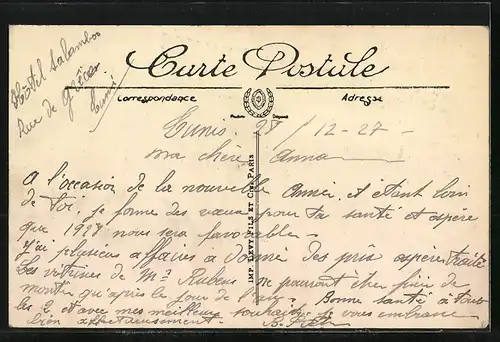 Hôtel Salamboo
Rue de Grèce
Tunis
Carte Postale
Correspondance
Adresse
Tunis. 28/12-27-
Ma chère Anna
A l'occasion de la nouvelle année, et étant loin
de toi, je forme des vœux pour ta santé et espère
que 1928 nous sera favorable-
J'ai plusieurs affaires à donné des prix espère traité
Les vitrines de Mr Rubens ne pourront être fini de
monter qu'après le Jour de l'an- Bonne santé à tous
les 2 et avec mes meilleurs souhaits je vous embrasse
bien affectueusement-
IMP. LEVY FILS ET CIE PARIS